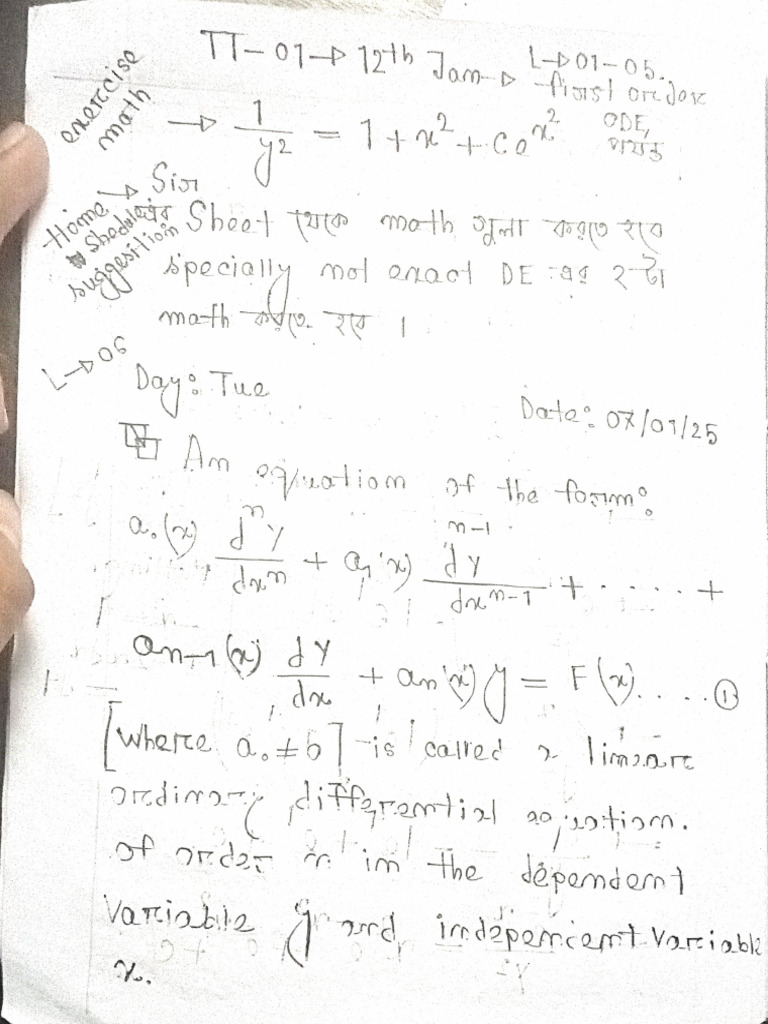 TT-01→12th Jan→ L→01-05.
first order
ODE,
পর্যন্ত
exercise
math → 1/y² = 1+x²+ce^x²
Home → Sir
Shedule এর
suggestion
Sheet থেকে math গুলা করতে হবে
specially not exact DE এর ২টা
math করতে হবে।
L→06
Day: Tue
Date: 07/01/25
An equation of the form:
a₀(x) dⁿy/dxⁿ + a₁(x) dⁿ⁻¹y/dxⁿ⁻¹ + ..... +
aₙ₋₁(x) dy/dx + aₙ(x) y = F(x).....①
[where a₀≠0] is called a linear
ordinary differential equation.
of order n in the dependent
variable y and independent variable
x.